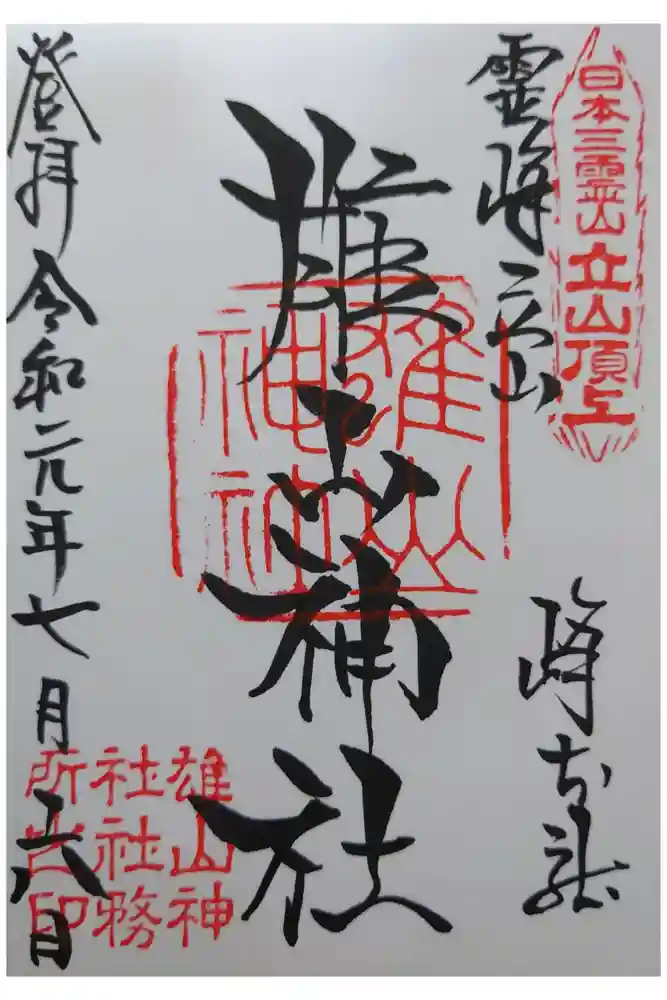 日本三霊山
立山頂上
霊峰立山
峰本社
雄山神社
雄山
神社
登拝 令和元年七月
日
雄山神
社社務
所之印